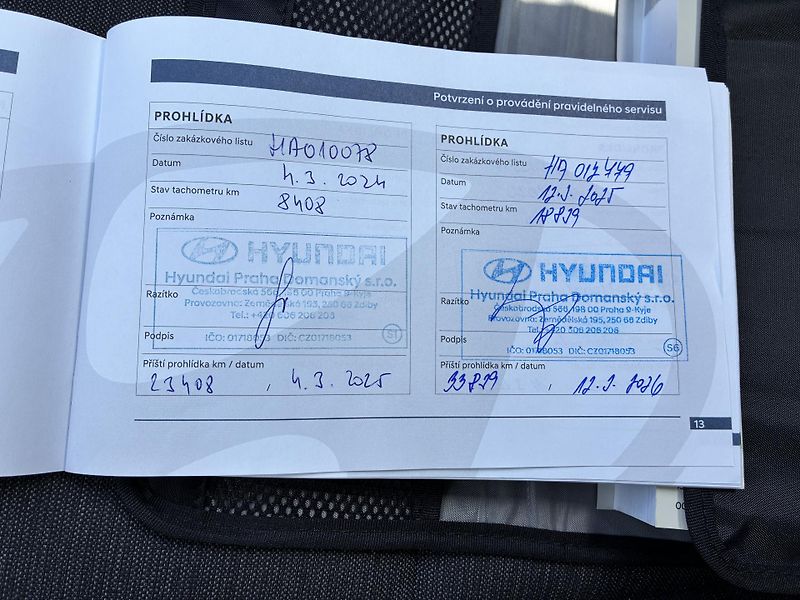 Potvrzení o provádění pravidelného servisu
PROHLÍDKA
Číslo zakázkového listu HA010078
Datum 4. 3. 2024
Stav tachometru km 8408
Poznámka
HYUNDAI
Hyundai Praha Domanský s.r.o.
Českobrodská 560, 198 00 Praha 9-Kyje
Razítko
Provozovna: Zemědělská 195, 250 66 Zdiby
Tel.: +420 606 206 206
Podpis
IČO: 01718053 DIČ: CZ01718053
S1
Příští prohlídka km / datum
23408 , 4. 3. 2025
PROHLÍDKA
Číslo zakázkového listu HA 012779
Datum
Stav tachometru km 18839
Poznámka
HYUNDAI
Hyundai Praha Domanský s.r.o.
Razítko
Českobrodská 560, 198 00 Praha 9-Kyje
Provozovna: Zemědělská 195, 250 66 Zdiby
Tel.: +420 606 206 206
Podpis
IČO: 01718053 DIČ: CZ01718053
S6
Příští prohlídka km / datum
33839 ,
13